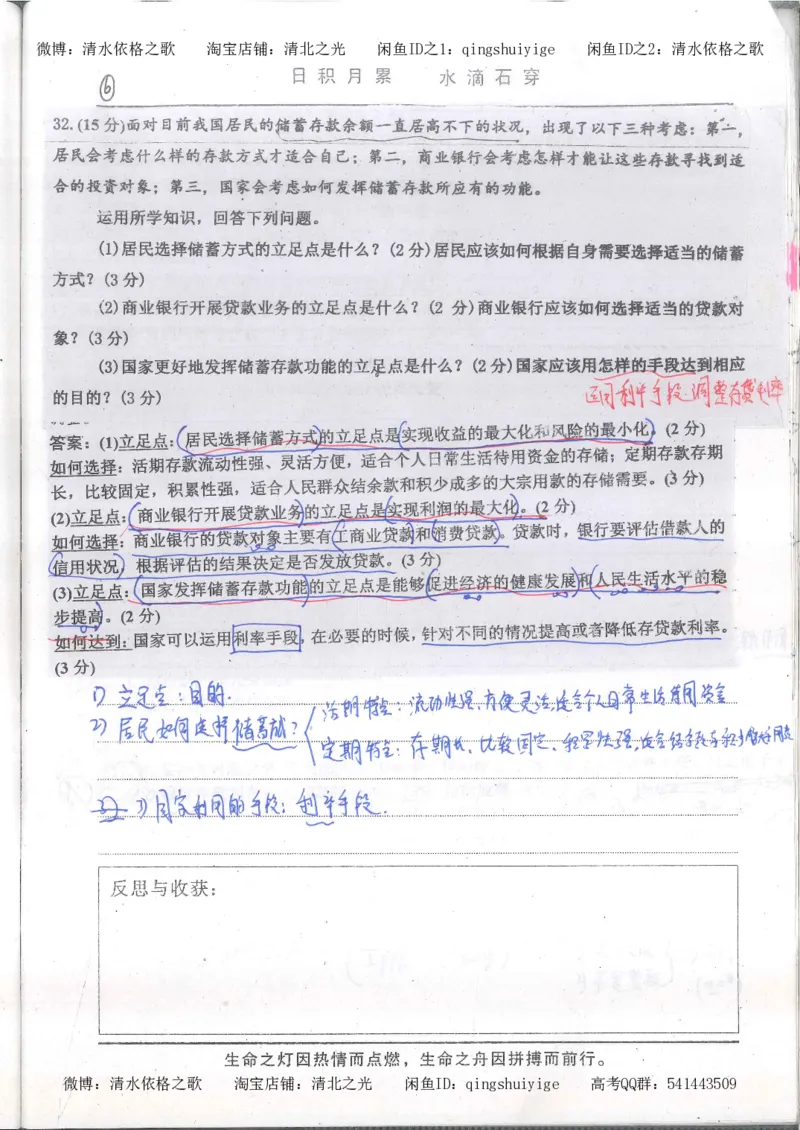 微博：清水依格之歌 淘宝店铺：清北之光 闲鱼ID之1：qingshuiyige 闲鱼ID之2：清水依格之歌
日积月累 水滴石穿
⑥
32.(15分)面对目前我国居民的储蓄存款余额一直居高不下的状况，出现了以下三种考虑：第一，
居民会考虑什么样的存款方式才适合自己；第二，商业银行会考虑怎样才能让这些存款寻找到适
合的投资对象；第三，国家会考虑如何发挥储蓄存款所应有的功能。
运用所学知识，回答下列问题。
(1)居民选择储蓄方式的立足点是什么？(2分)居民应该如何根据自身需要选择适当的储蓄
方式？(3分)
(2)商业银行开展贷款业务的立足点是什么？(2 分)商业银行应该如何选择适当的贷款对
象？(3分)
(3)国家更好地发挥储蓄存款功能的立足点是什么？(2分)国家应该用怎样的手段达到相应
的目的？(3 分)
运用利率手段调整存贷利率
答案：(1)立足点：居民选择储蓄方式的立足点是实现收益的最大化和风险的最小化。(2分)
如何选择：活期存款流动性强、灵活方便，适合个人日常生活待用资金的存储；定期存款存期
长，比较固定，积累性强，适合人民群众结余款和积少成多的大宗用款的存储需要。(3分)
(2)立足点：商业银行开展贷款业务的立足点是实现利润的最大化。(2分)
如何选择：商业银行的贷款对象主要有工商业贷款和消费贷款。贷款时，银行要评估借款人的
信用状况，根据评估的结果决定是否发放贷款。(3分)
(3)立足点：国家发挥储蓄存款功能的立足点是能够促进经济的健康发展和人民生活水平的稳
步提高。(2分)
如何达到：国家可以运用利率手段，在必要的时候，针对不同的情况提高或者降低存贷款利率。
(3分)
1) 立足点：目的.
2) 居民如何选择储蓄存款？
活期特点：流动性强、方便灵活，适合个人日常生活待用资金
定期特点：存期长、比较固定、积累性强，适合结余款与积少成多
3) 国家利用的手段：利率手段.
反思与收获：
生命之灯因热情而点燃，生命之舟因拼搏而前行。
微博：清水依格之歌 淘宝店铺：清北之光 闲鱼ID：qingshuiyige 高考QQ群：541443509